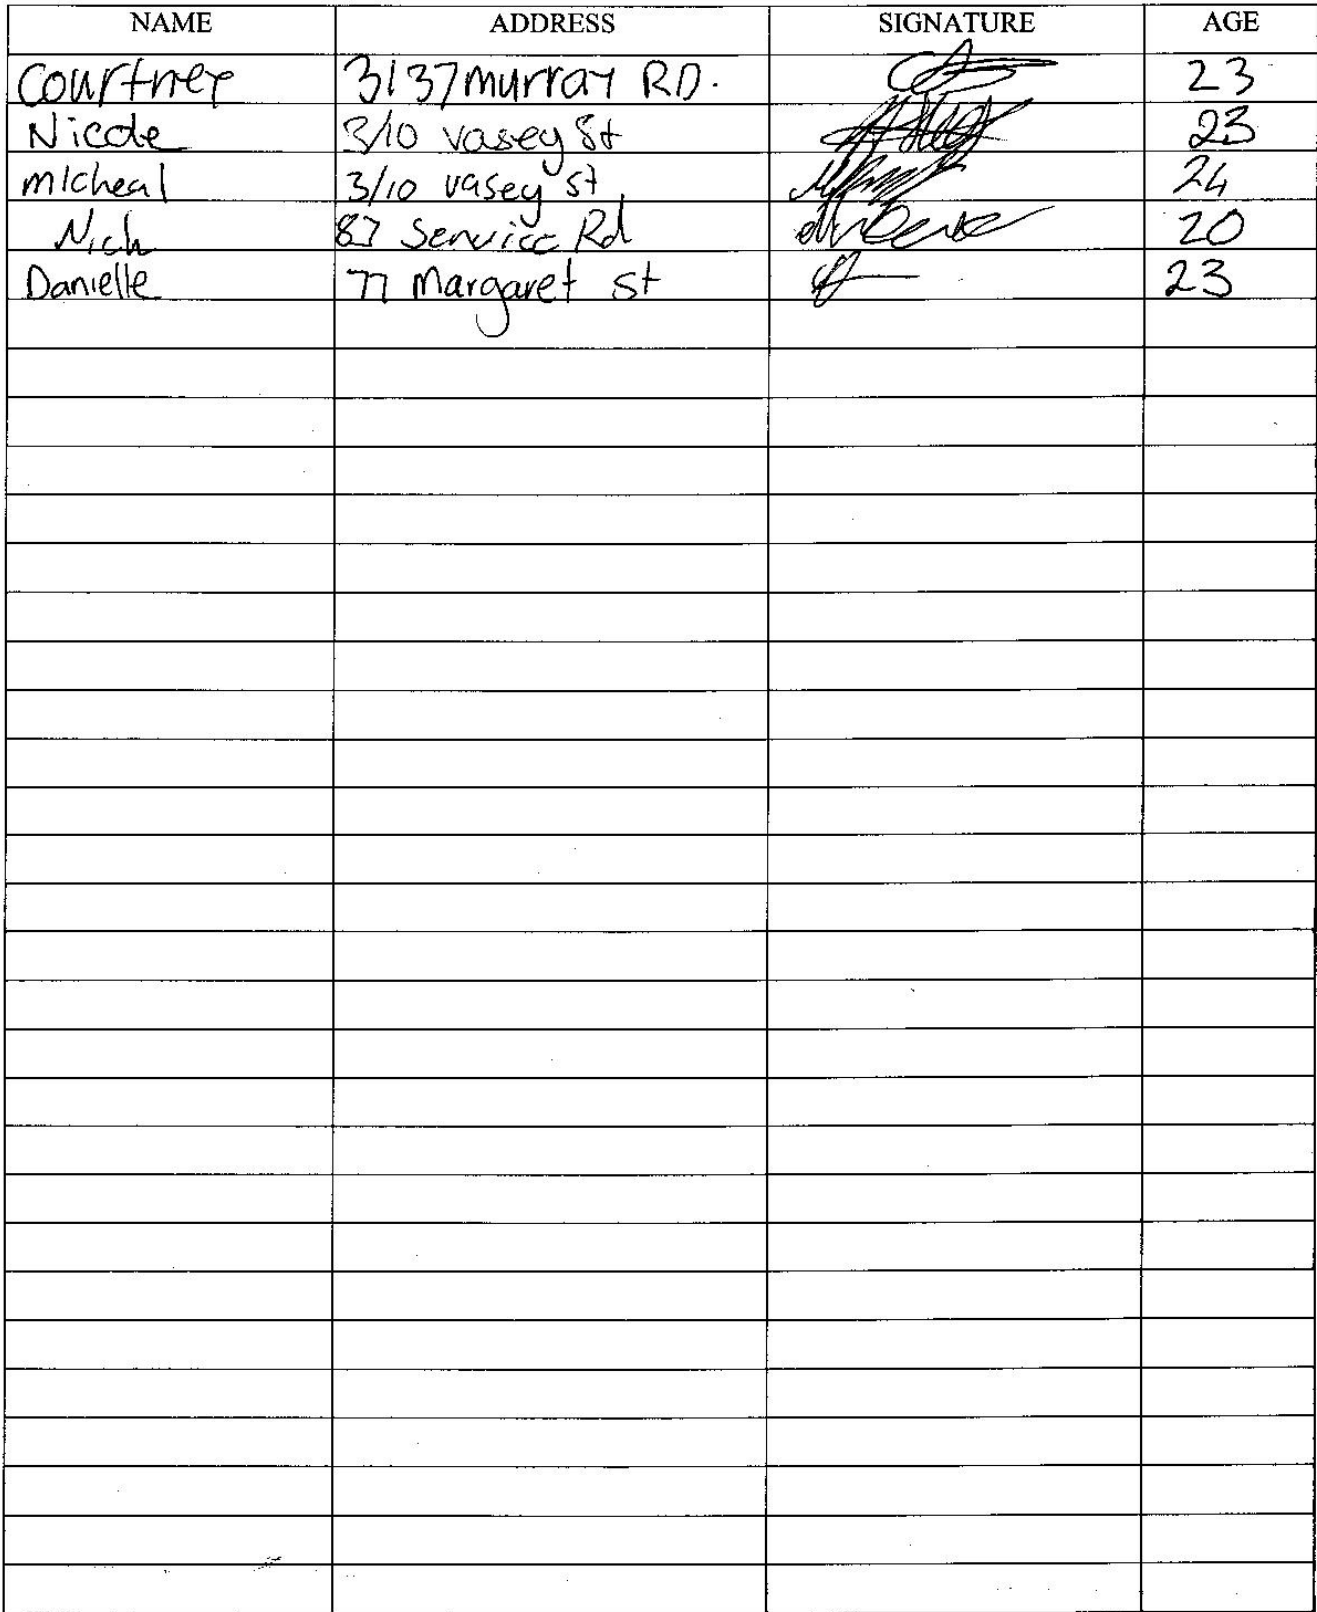 NAME ADDRESS SIGNATURE AGE
Courtney 3137 murray RD. 23
Nicole 3/10 vasey St 23
micheal 3/10 vasey st 24
Nich 87 Service Rd 20
Danielle 77 Margaret st 23